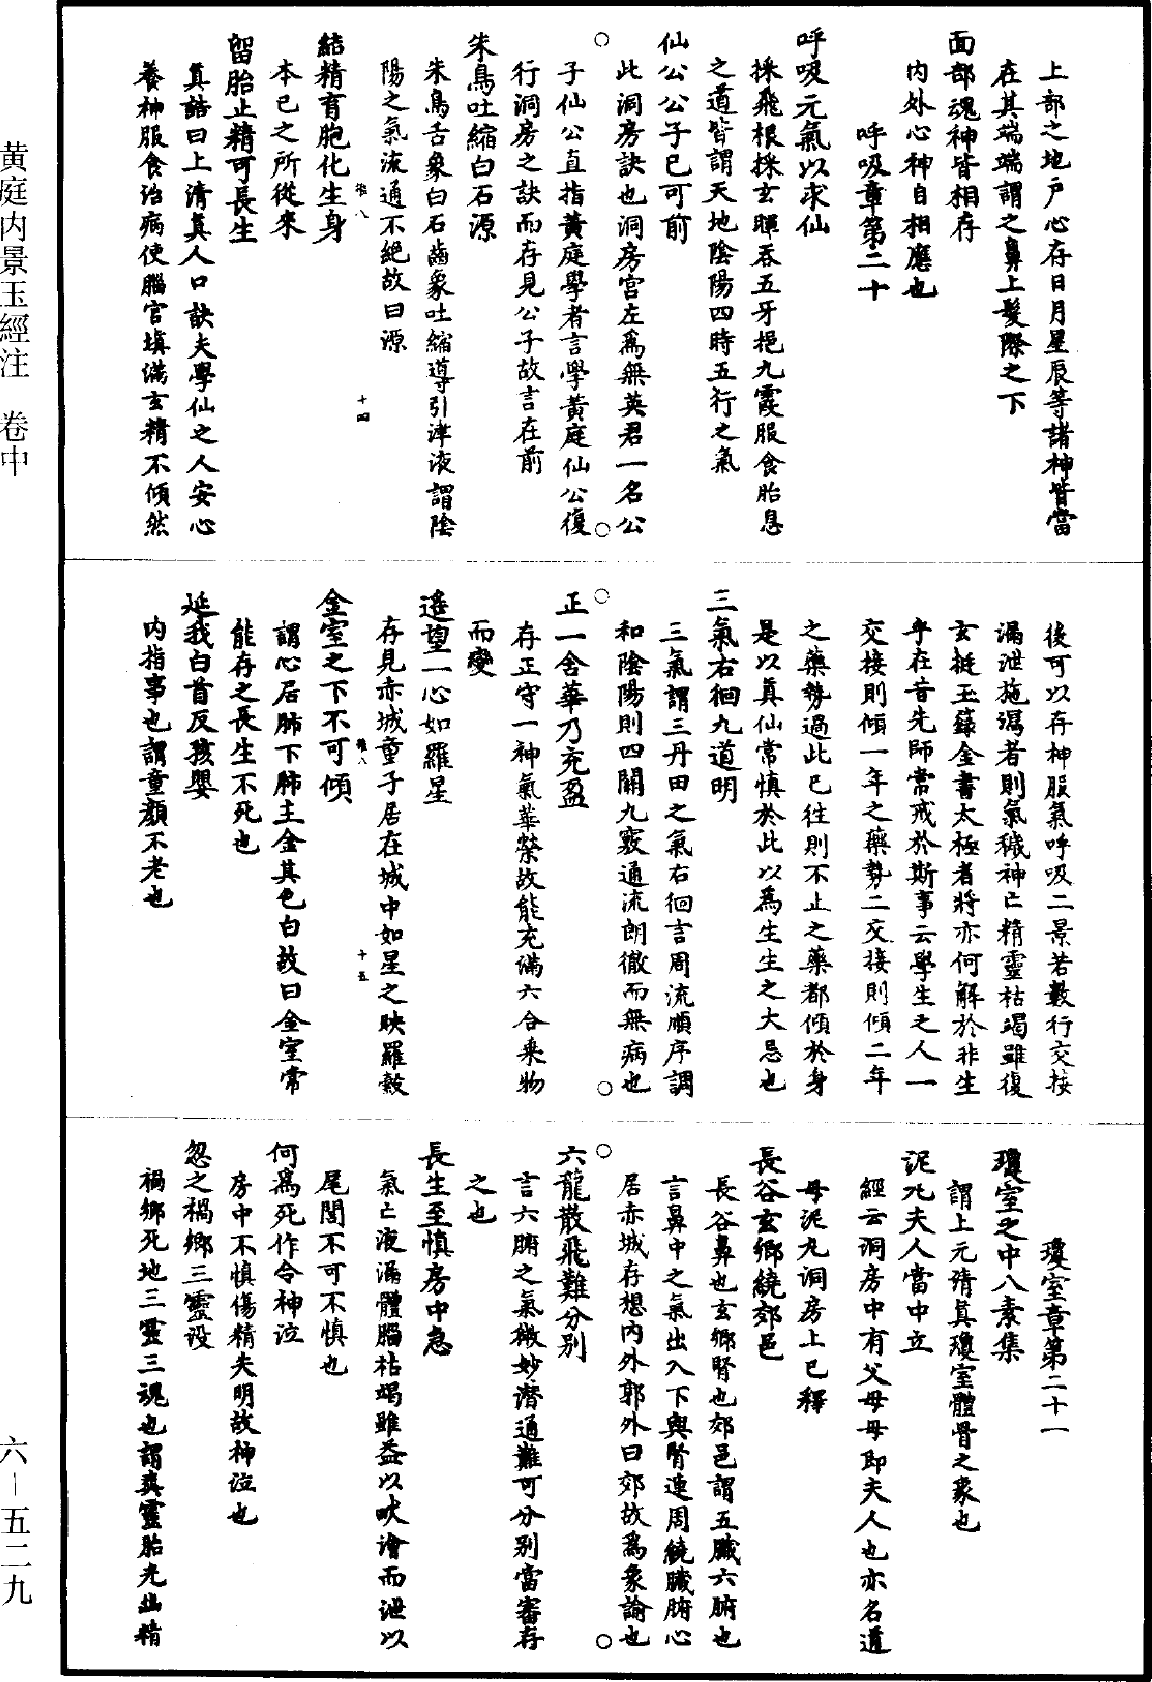 上部之地戶心存日月星辰等諸神皆當
在其端端謂之鼻上髮際之下
面部魂神皆相存
内外心神自相應也
呼吸章第二十
呼吸元氣以求仙
採飛根採玄暉吞五牙挹九霞服食胎息
之道皆謂天地陰陽四時五行之氣
仙公公子已可前
此洞房訣也洞房宫左爲無英君一名公
子仙公直指黄庭學者言學黄庭仙公復
行洞房之訣而存見公子故言在前
朱鳥吐縮白石源
朱鳥舌象白石齒象吐縮導引津液謂陰
陽之氣流通不絕故曰源
十四
結精育胞化生身
本已之所從來
留胎止精可長生
真誥曰上清真人口訣夫學仙之人安心
養神服食治病使腦宫填滿玄精不傾然
後可以存神服氣呼吸二景若數行交接
漏泄施瀉者則氣穢神亡精靈枯竭雖復
玄挺玉籙金書太極者將亦何解於非生
乎在昔先師常戒於斯事云學生之人一
交接則傾一年之藥勢二交接則傾二年
之藥勢過此已往則不止之藥都傾於身
是以真仙常慎於此以爲生生之大忌也
三氣右徊九道明
三氣謂三丹田之氣右徊言周流順序調
和陰陽則四關九竅通流朗徹而無病也
正一含華乃充盈
存正守一神氣華榮故能充滿六合乘物
而變
遥望一心如羅星
存見赤城童子居在城中如星之映羅縠
十五
金室之下不可傾
謂心居肺下肺主金其色白故曰金室常
能存之長生不死也
延我白首反孩嬰
内指事也謂童顏不老也
瓊室章第二十一
瓊室之中八素集
謂上元清真瓊室體骨之象也
泥丸夫人當中立
經云洞房中有父母母即夫人也亦名道
母泥丸洞房上已釋
長谷玄鄉繞郊邑
長谷鼻也玄鄉腎也郊邑謂五臟六腑也
言鼻中之氣出入下與腎連周繞臟腑心
居赤城存想内外郭外曰郊故爲象諭也
六龍散飛難分别
言六腑之氣微妙潛通難可分别當審存
之也
長生至慎房中急
氣亡液漏體腦枯竭雖益以吠澮而泄以
尾閭不可不慎也
何爲死作令神泣
房中不慎傷精失明故神泣也
忽之禍鄉三靈殁
禍鄉死地三靈三魂也謂爽靈胎光幽精
黄庭内景玉經注 卷中
六—五二九